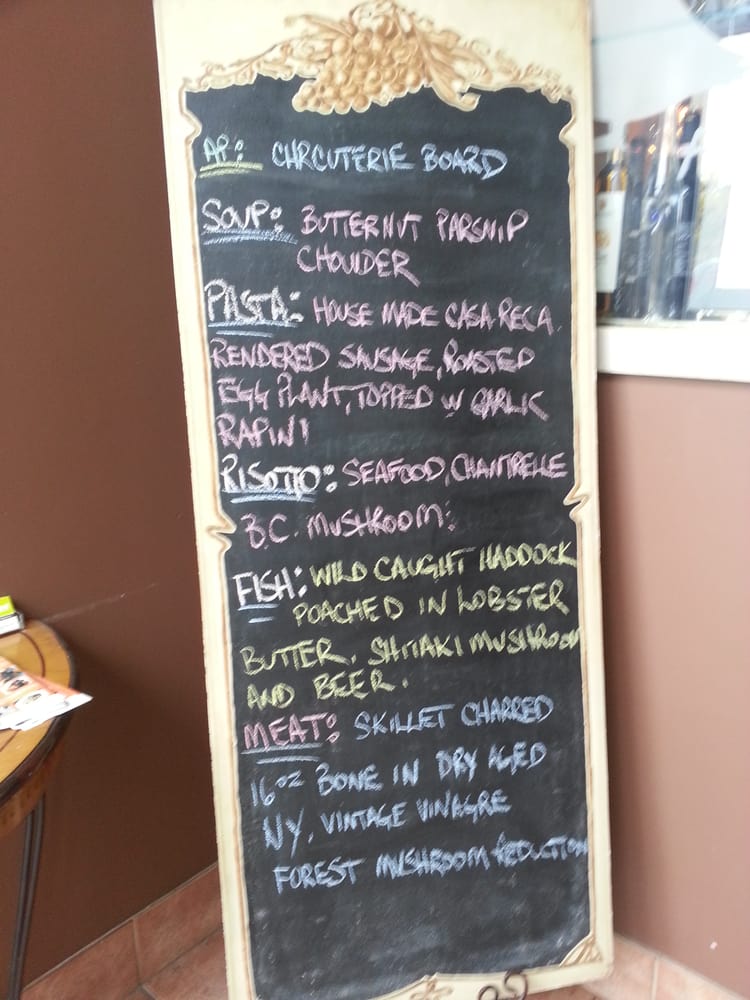 AP: CHRCUTERIE BOARD
SOUP: BUTTERNUT PARSNIP
CHOWDER
PASTA: HOUSE MADE CASA RECA.
RENDERED SAUSAGE, ROASTED
EGG PLANT, TOPPED W GARLIC
RAPINI
RISOTTO: SEAFOOD, CHANTRELLE
B.C. MUSHROOM.
FISH: WILD CAUGHT HADDOCK
POACHED IN LOBSTER
BUTTER. SHITIAKI MUSHROOM
AND BEER.
MEAT: SKILLET CHARRED
16oz BONE IN DRY AGED
NY, VINTAGE VINAGRE
FOREST MUSHROOM REDUCTION